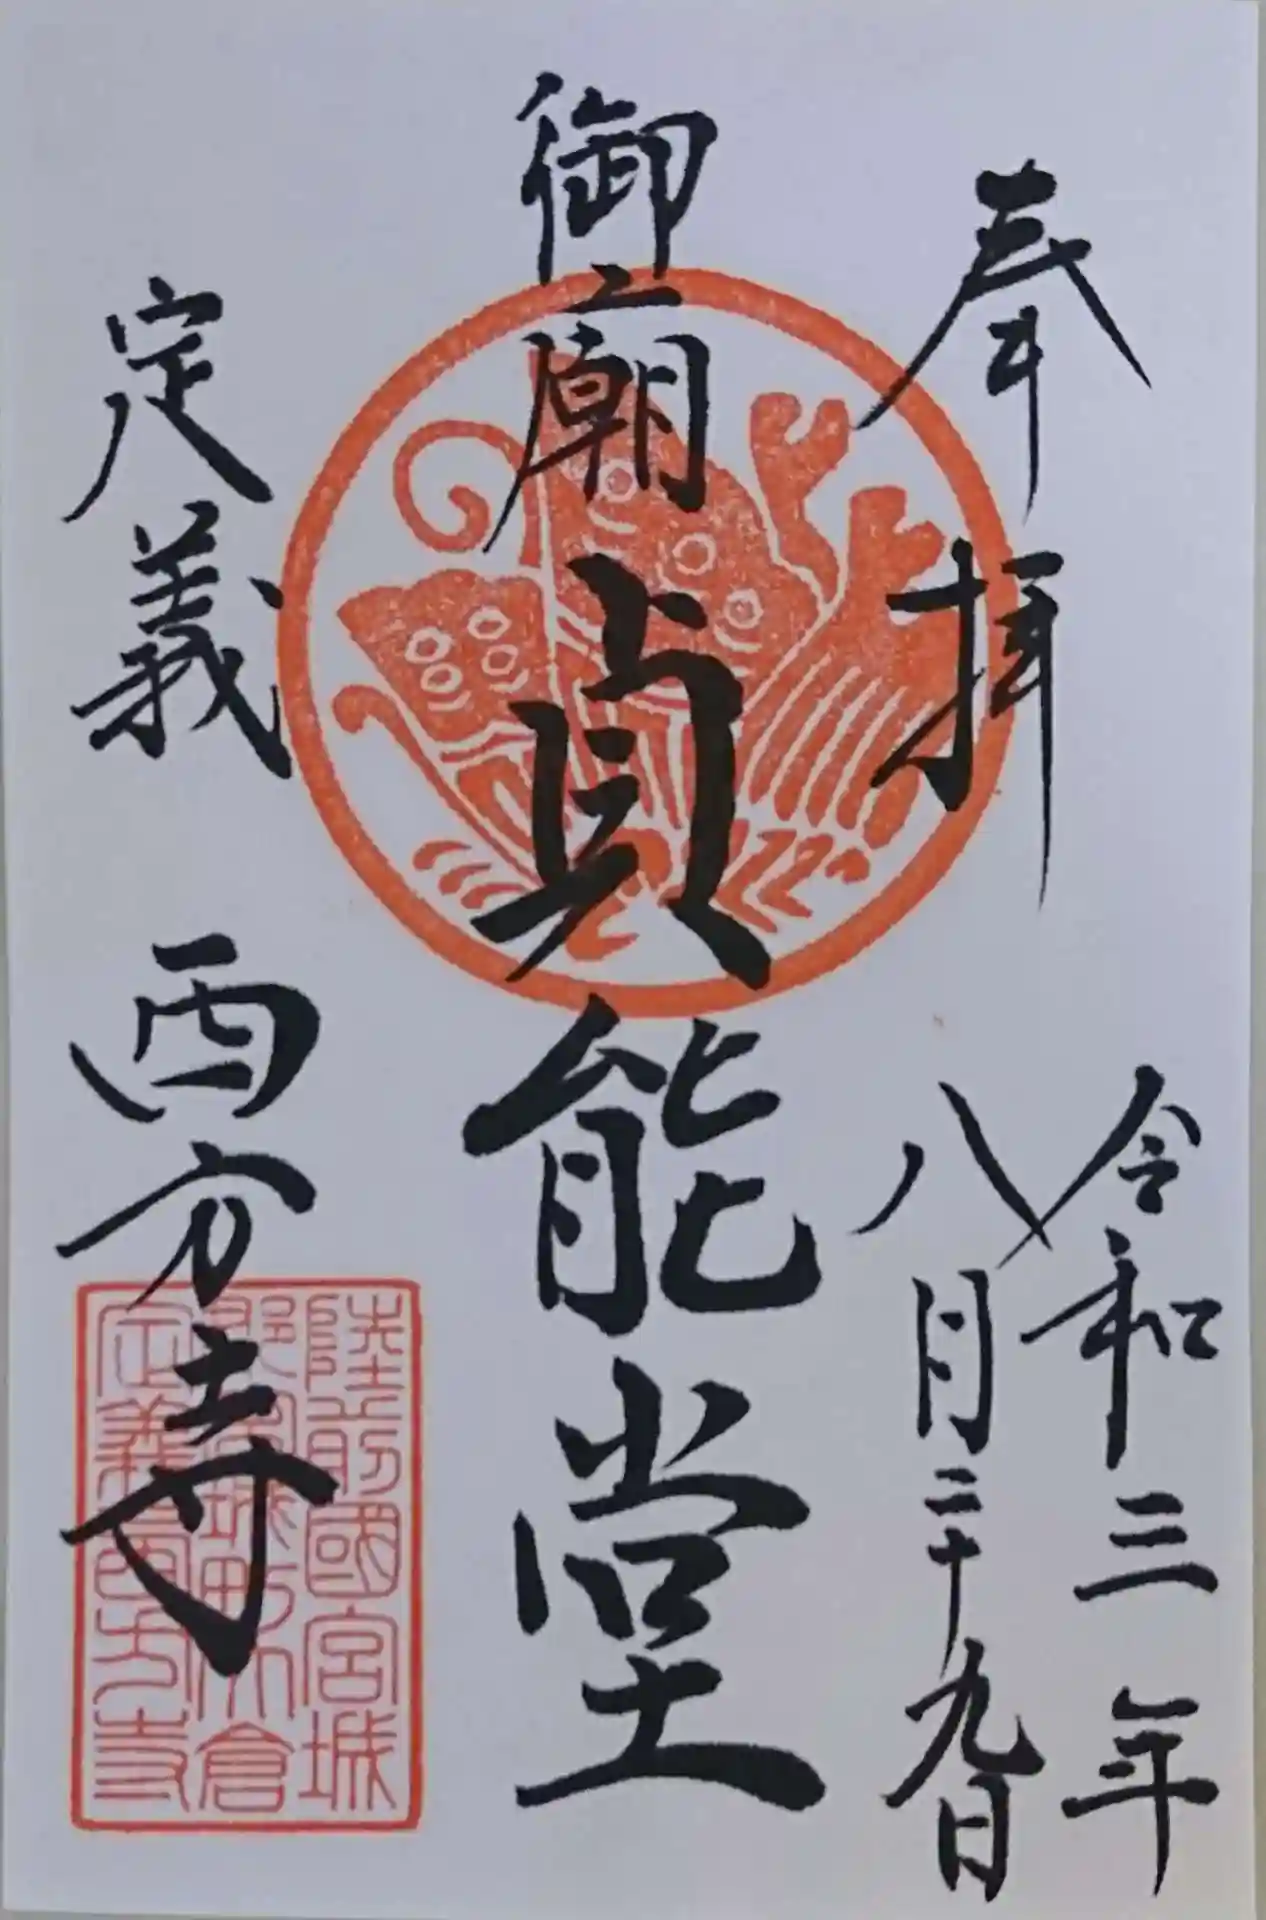 奉拝
令和三年
八月二十九日
御廟貞能堂
定義 西方寺
陸前國宮城
郡宮城町大倉
定義西方寺